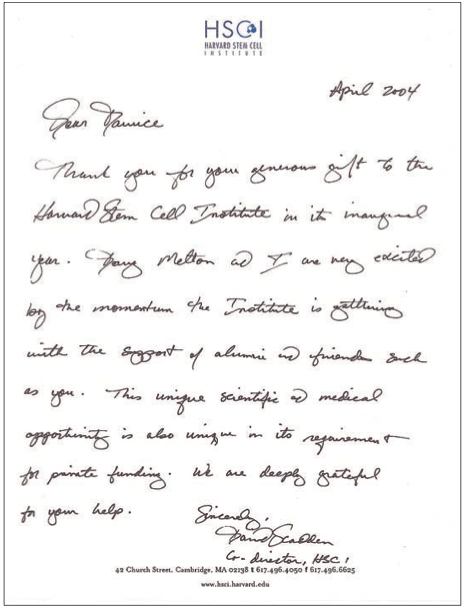 HSCI
HARVARD STEM CELL
INSTITUTE
April 2004
Dear Maurice
Thank you for your generous gift to the
Harvard Stem Cell Institute in its inaugural
year. Doug Melton ad I are very excited
by the momentum the Institute is gathering
with the support of alumni ad friends such
as you. This unique scientific ad medical
opportunity is also unique in its requirement
for private funding. We are deeply grateful
for your help.
Sincerely,
David Scadden
Co-director, HSCI
42 Church Street, Cambridge, MA 02138 t 617.496.4050 f 617.496.6625
www.hsci.harvard.edu